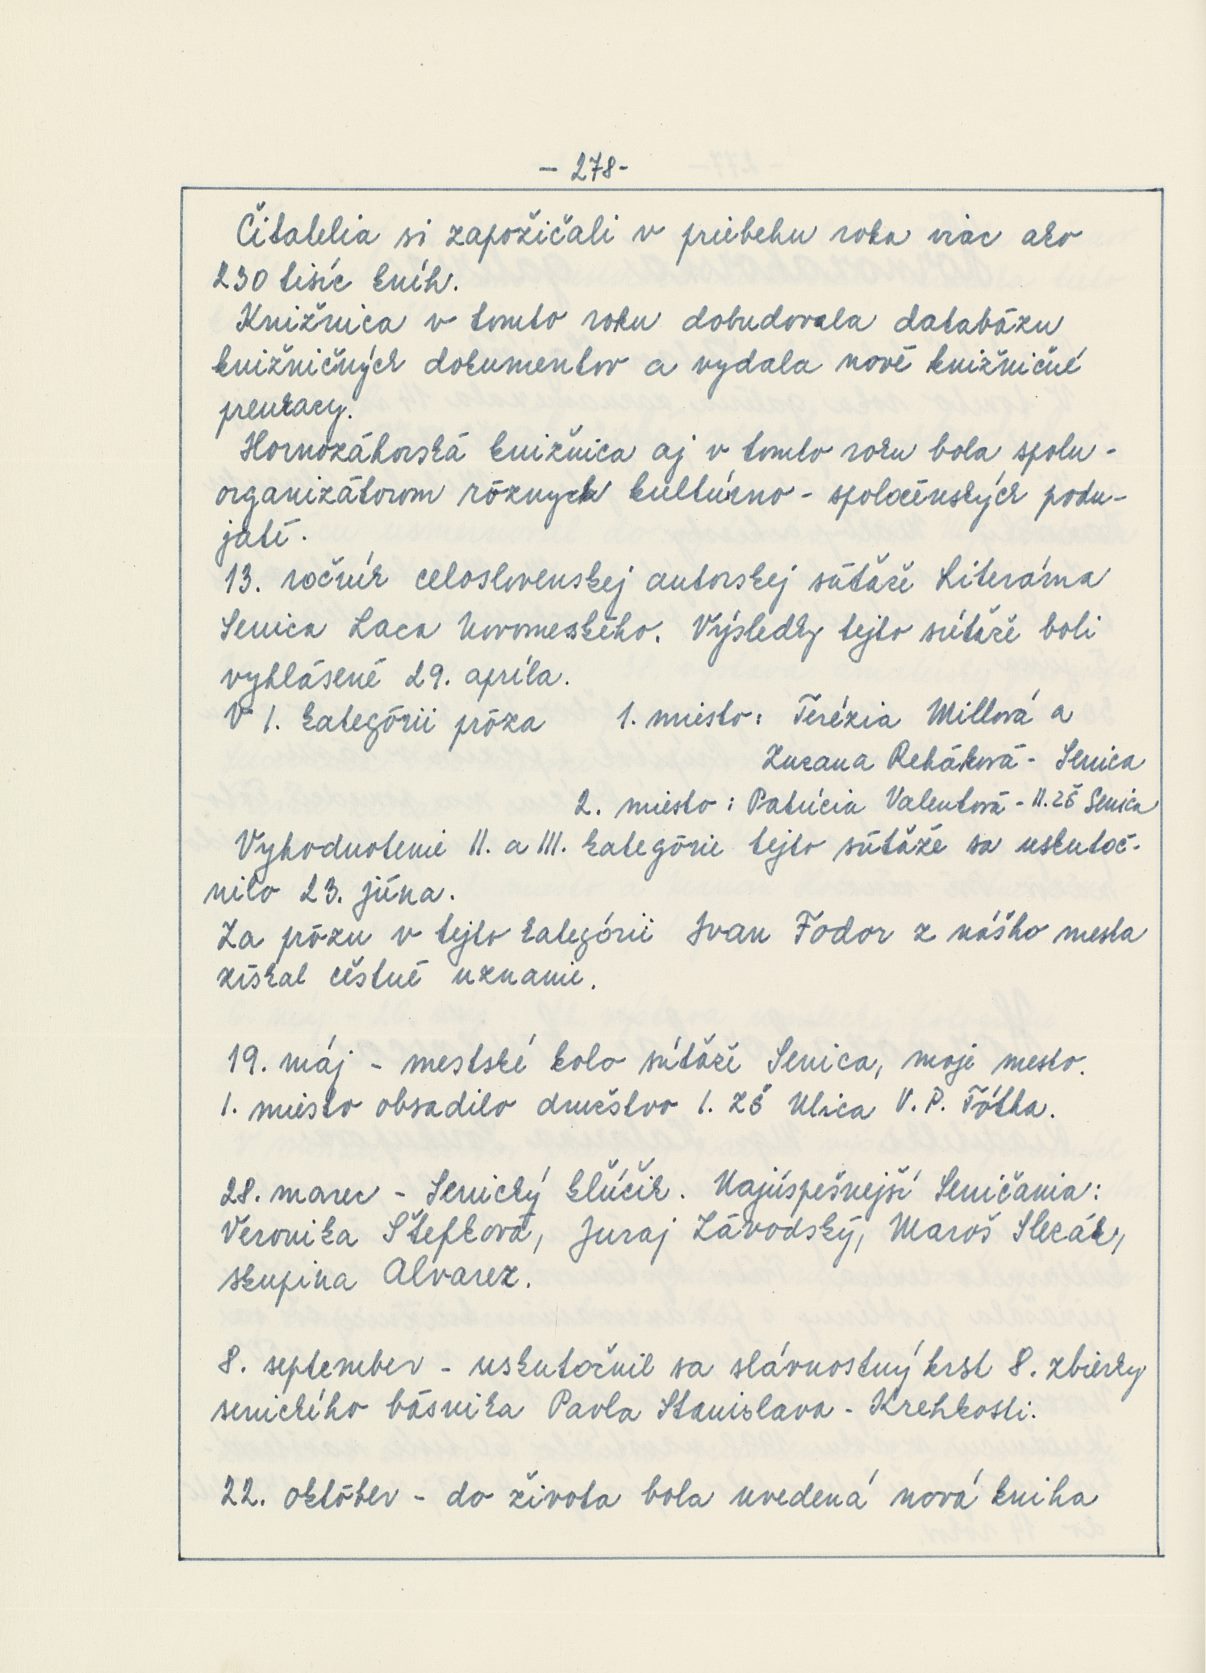 - 278-
Čitatelia si zapožičali v priebehu roka viac ako
230 tisíc kníh.
Knižnica v tomto roku dobudovala databázu
knižničných dokumentov a vydala nové knižničné
preukazy.
Hornozáhorská knižnica aj v tomto roku bola spolu-
organizátorom rôznych kultúrno - spoločenských podu-
jatí.
13. ročník celoslovenskej autorskej súťaže Literárna
Senica Laca Novomeského. Výsledky tejto súťaže boli
vyhlásené 29. apríla.
V I. kategórii próza 1. miesto: Terézia Millová a
Zuzana Reháková - Senica
2. miesto: Patrícia Valentová - II. ZŠ Senica
Vyhodnotenie II. a III. kategórie tejto súťaže sa uskutoč-
nilo 23. júna.
Za prózu v tejto kategórii Ivan Fodor z nášho mesta
získal čestné uznanie.
19. máj - mestské kolo súťaže Senica, moje mesto.
1. miesto obsadilo družstvo I. ZŠ Ulica V. P. Tótha.
28. marec - Senický kľúčik. Najúspešnejší Seničania:
Veronika Štefková, Juraj Závodský, Maroš Slezák,
skupina Alvarez.
8. september - uskutočnil sa slávnostný krst 8. zbierky
senického básnika Pavla Stanislava - Krehkosti.
22. október - do života bola uvedená nová kniha